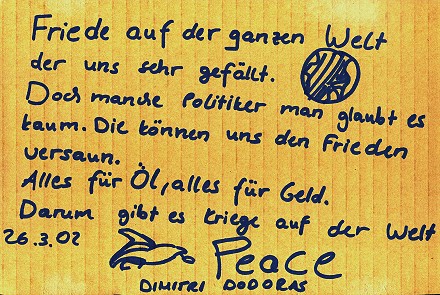 Friede auf der ganzen Welt
der uns sehr gefällt.
Doch manche Politiker man glaubt es
kaum. Die können uns den Frieden
versaun.
Alles für Öl, alles für Geld.
Darum gibt es kriege auf der Welt
26.3.02 Peace
DIMITRI DODORAS